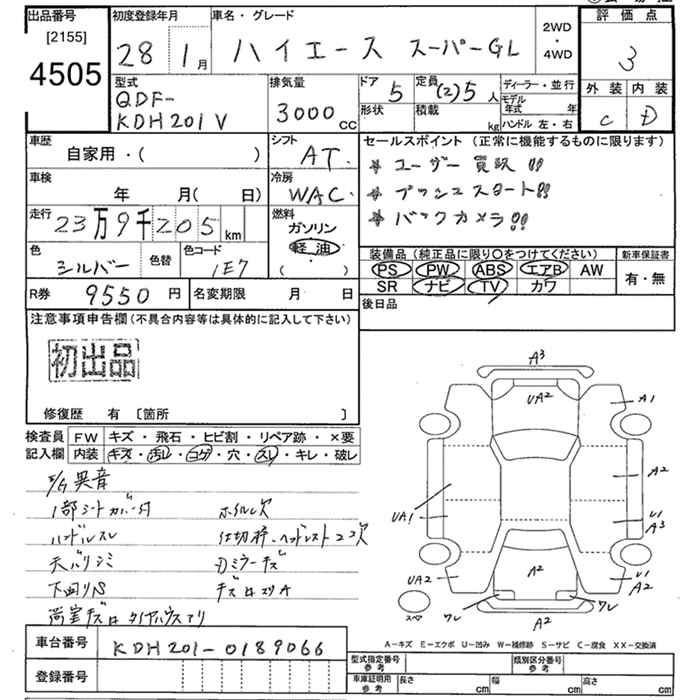 出品番号 初度登録年月 車名・グレード 評価点
[2155]
4505
28 1月 ハイエース スーパーGL
2WD
・
4WD
3
外装 内装
C D
型式 排気量 ドア 定員 ディーラー・並行
QDF-
KDH201V
3000cc
5 (2)5人
モデル年式 年
形状 積載 kg ハンドル 左・右
車歴 シフト セールスポイント (正常に機能するものに限ります)
自家用・( ) AT
* ユーザー買取!!
車検 冷房
年 月( 日) WAC
* プッシュスタート!!
走行 燃料
23万9千205km ガソリン
* バックカメラ!!
軽油
( )
色 色替 色コード
シルバー 1E7
装備品 (純正品に限り○をつけてください) 新車保証書
PS PW ABS エアB AW
SR ナビ TV カワ
有・無
R券 9550円 名変期限 月 日
後日品
注意事項申告欄(不具合内容等は具体的に記入して下さい)
初出品
修復歴 有 〔箇所 〕
検査員 FW キズ・飛石・ヒビ割・リペア跡・×要
記入欄 内装 キズ・汚レ・コゲ・穴・スレ・キレ・破レ
E/G異音
1部シートカバー付 ホイル欠
ハンドルスレ 仕切枠・ヘッドレスト2コ欠
天バリシミ Dミラーキズ
下回りS キズ凹スリA
A3
UA2
A1
A2
UA1
U1
A3
UA2
A2
U1
A2
ワレ
ワレ
A2
スペア
車台番号 KDH201-0189066
登録番号
A－キズ E－エクボ U－凹み W－補修跡 S－サビ C－腐食 XX－交換済
型式指定番号 参考 類別区分番号 参考
車庫証明用 参考 長さ cm 幅 cm 高さ cm